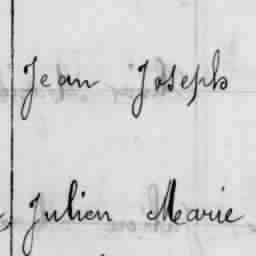 Jean Joseph
Julien Marie